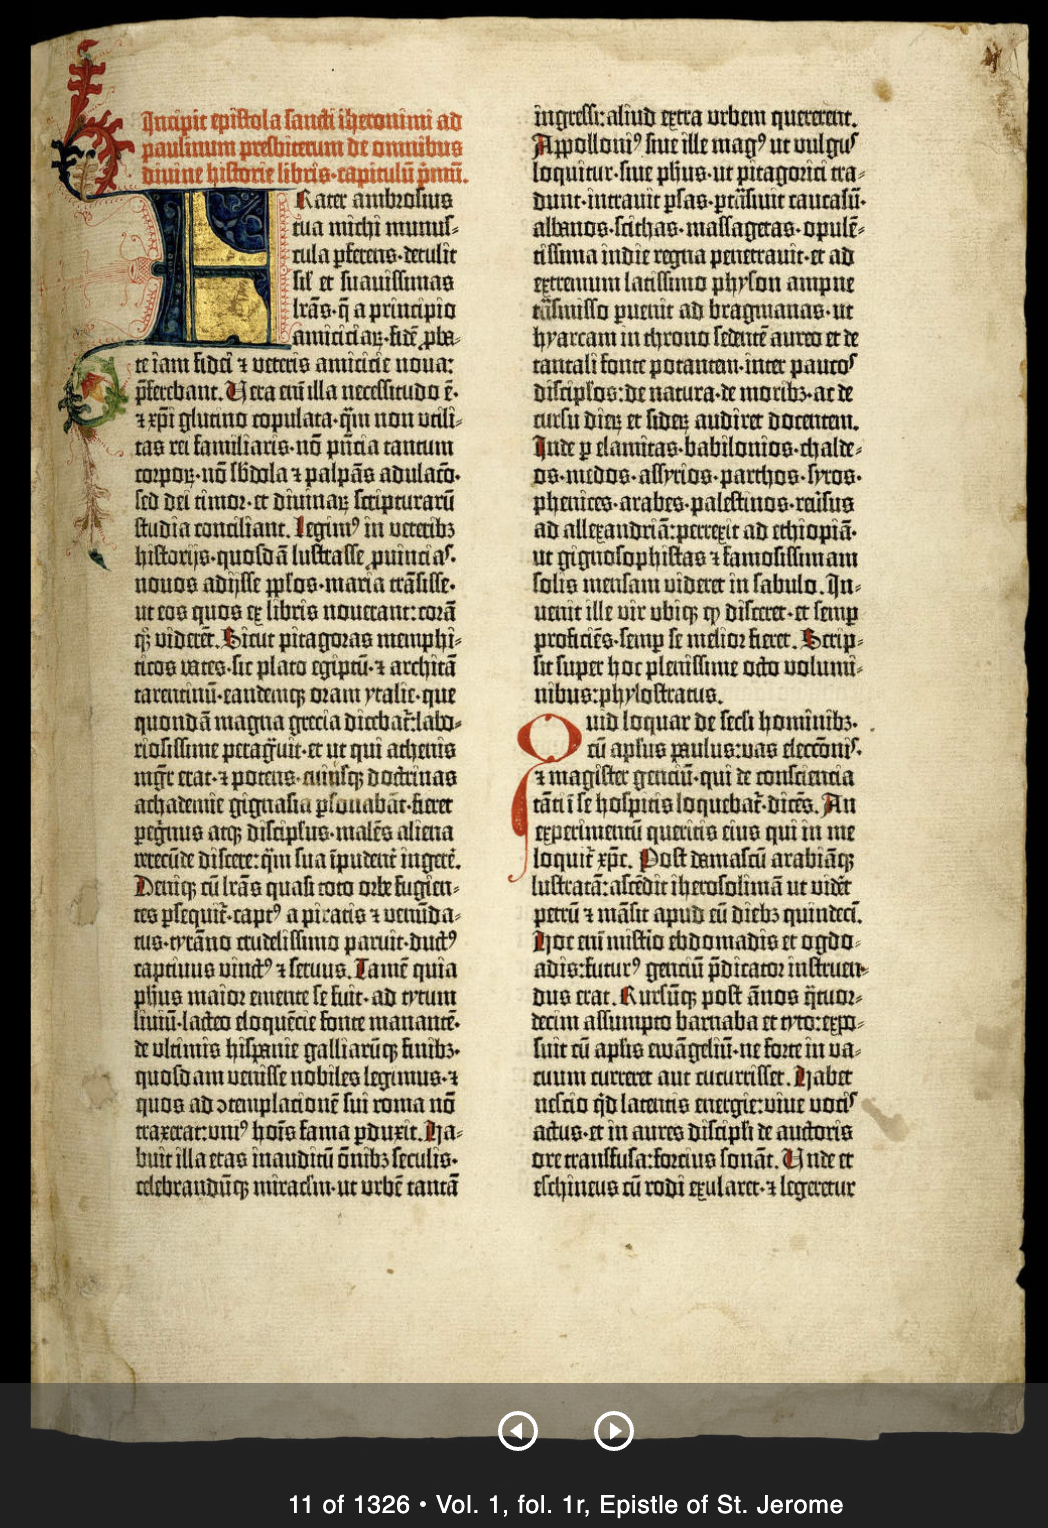 Incipit epistola sancti iheronimi ad
paulinum presbiterum de omnibus
divine historie libris·capitulū p̄mū.
Frater ambrosius
tua michi munus-
cula ꝑferens·detulit
sil' et suauissimas
lrās·q̄ a principio
amiciciaꝝ·fidē ꝓba-
te iam fidei ⁊ veteris amicicie noua:
p̄ferebant. Uera eni illa necessitudo ē·
⁊ xp̄i glutino copulata·q̄m non vtili-
tas rei familiaris·nō p̄ncia tantum
corpoꝝ·nō sbdola ⁊ palpās adulacō·
sed dei timor·et diuinaꝝ scripturarū
studia conciliant. Legimꝰ in veteribꝫ
historijs·quosdā lustrasse ꝓuincias·
nouos adijsse ꝓplos·maria trāsisse·
ut eos quos ex libris nouerant: corā
qꝫ viderēt. Sicut pitagoras memphi-
ticos vates·sic plato egiptū·⁊ architā
tarentinū·eandemqꝫ oram ytalie·que
quondā magna grecia dicebat̄: labo-
riosissime peragᷓuit·et ut qui athenis
mgr̄ erat·⁊ potens·cuiusqꝫ doctrinas
achademie gignasia ꝑsonabāt·fieret
peg̓nus atqꝫ discipls·malēs aliena
verecūde discere: q̄m sua īpudent̄ ingerē.
Deniqꝫ cū lrās quasi toto orbe fugien-
tes ꝑsequit̄·captꝰ a piratis ⁊ venūda-
tus·tyrāno crudelissimo paruit·ductꝰ
captiuus vinctꝰ ⁊ seruus. Tamē quia
ph̄us maior emente se fuit·ad tytum
liuiū·lacteo eloquēcie fonte manantē·
de vltimis hispanie galliarūqꝫ finibꝫ·
quosdam venisse nobiles legimus·⁊
quos ad ꝯtemplacionē sui roma nō
traxerat: vniꝰ hoīs fama ꝑduxit. Ha-
buit illa etas inauditū ōnibꝫ seculis·
celebrandūqꝫ miraclm·ut vrbē tantā
ingressi: aliud extra vrbem quererent.
Appolloniꝰ siue ille magꝰ ut vulgus
loquitur·siue ph̄us·ut pitagorici tra-
dunt·intrauit ꝑsas·ꝑtᷓsiuit caucasū·
albanos·scithas·massagetas·opulē-
tissima indie regna penetrauit·et ad
extremum latissimo physon ampne
tᷓsmisso ꝑuenit ad bragmanas·ut
hyarcam in throno sedentē aureo et de
tantali fonte potantem·inter paucos
disciplos: de natura·de moribꝫ·ac de
cursu dieꝝ et sideꝝ audiret docentem.
Inde ꝑ elamitas·babilonios·chalde-
os·medos·assyrios·parthos·syros·
phenices·arabes·palestinos·reūsus
ad allexandriā: perrexit ad ethiopiā·
ut gignosophistas ⁊ famosissimam
solis mensam videret in sabulo. In-
uenit ille vir vbiqꝫ qp disceret·et semꝑ
proficiēs·semꝑ se melior fieret. Scrip-
sit super hoc plenissime octo volumi-
nibus: phylostratus.
Quid loquar de secli hominibꝫ·
cū apl̄us paulus: vas elecconis·
⁊ magister genciū·qui de consciencia
tāti ī se hospitis loquebat̄·dicēs. An
experimentū queritis eius qui in me
loquit̄ xp̄c. Post damascū arabiāqꝫ
lustratā: ascēdit iherosolimā ut vidēt
petrū ⁊ māsit apud eū diebꝫ quindecī.
Hoc eni mistio ebdomadis et ogdo-
adis: futurꝰ genciū p̄dicator instruen-
dus erat. Rursūqꝫ post ānos q̄tuor-
decim assumpto barnaba et tyto: expo-
suit cū apl̄is ewāgeliū·ne forte in va-
cuum curreret aut cucurrisset. Habet
nescio q̄d latentis energie: viue vocis
actus·et in aures discipli de auctoris
ore transfusa: forcius sonāt. Unde et
eschineus cū rodi exularet·⁊ legeretur
11 of 1326 • Vol. 1, fol. 1r, Epistle of St. Jerome